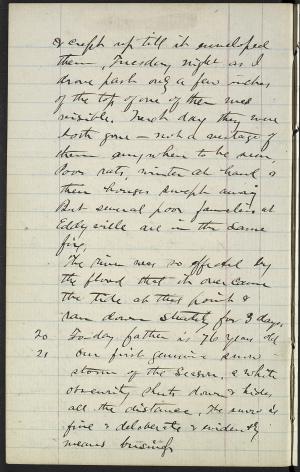 & crept up till it enveloped
them, Tuesday night as I
drove past only a few inches
of the top of one of them was
visible. Next day they were
both gone — not a vestage of
them anywhere to be seen,
Poor rats, winter at hand &
their houses swept away
But several poor families at
Eddyville are in the same
fix,
The river was so affected by
the flood that it overcame
the tide at this point &
ran down steadily for 3 days
20 To-day father is 76 years old
21 Our first genuine snow
storm of the season, a white
obscurity shuts down & hides
all the distance, The snow is
fine & deliberate & evidently
means business